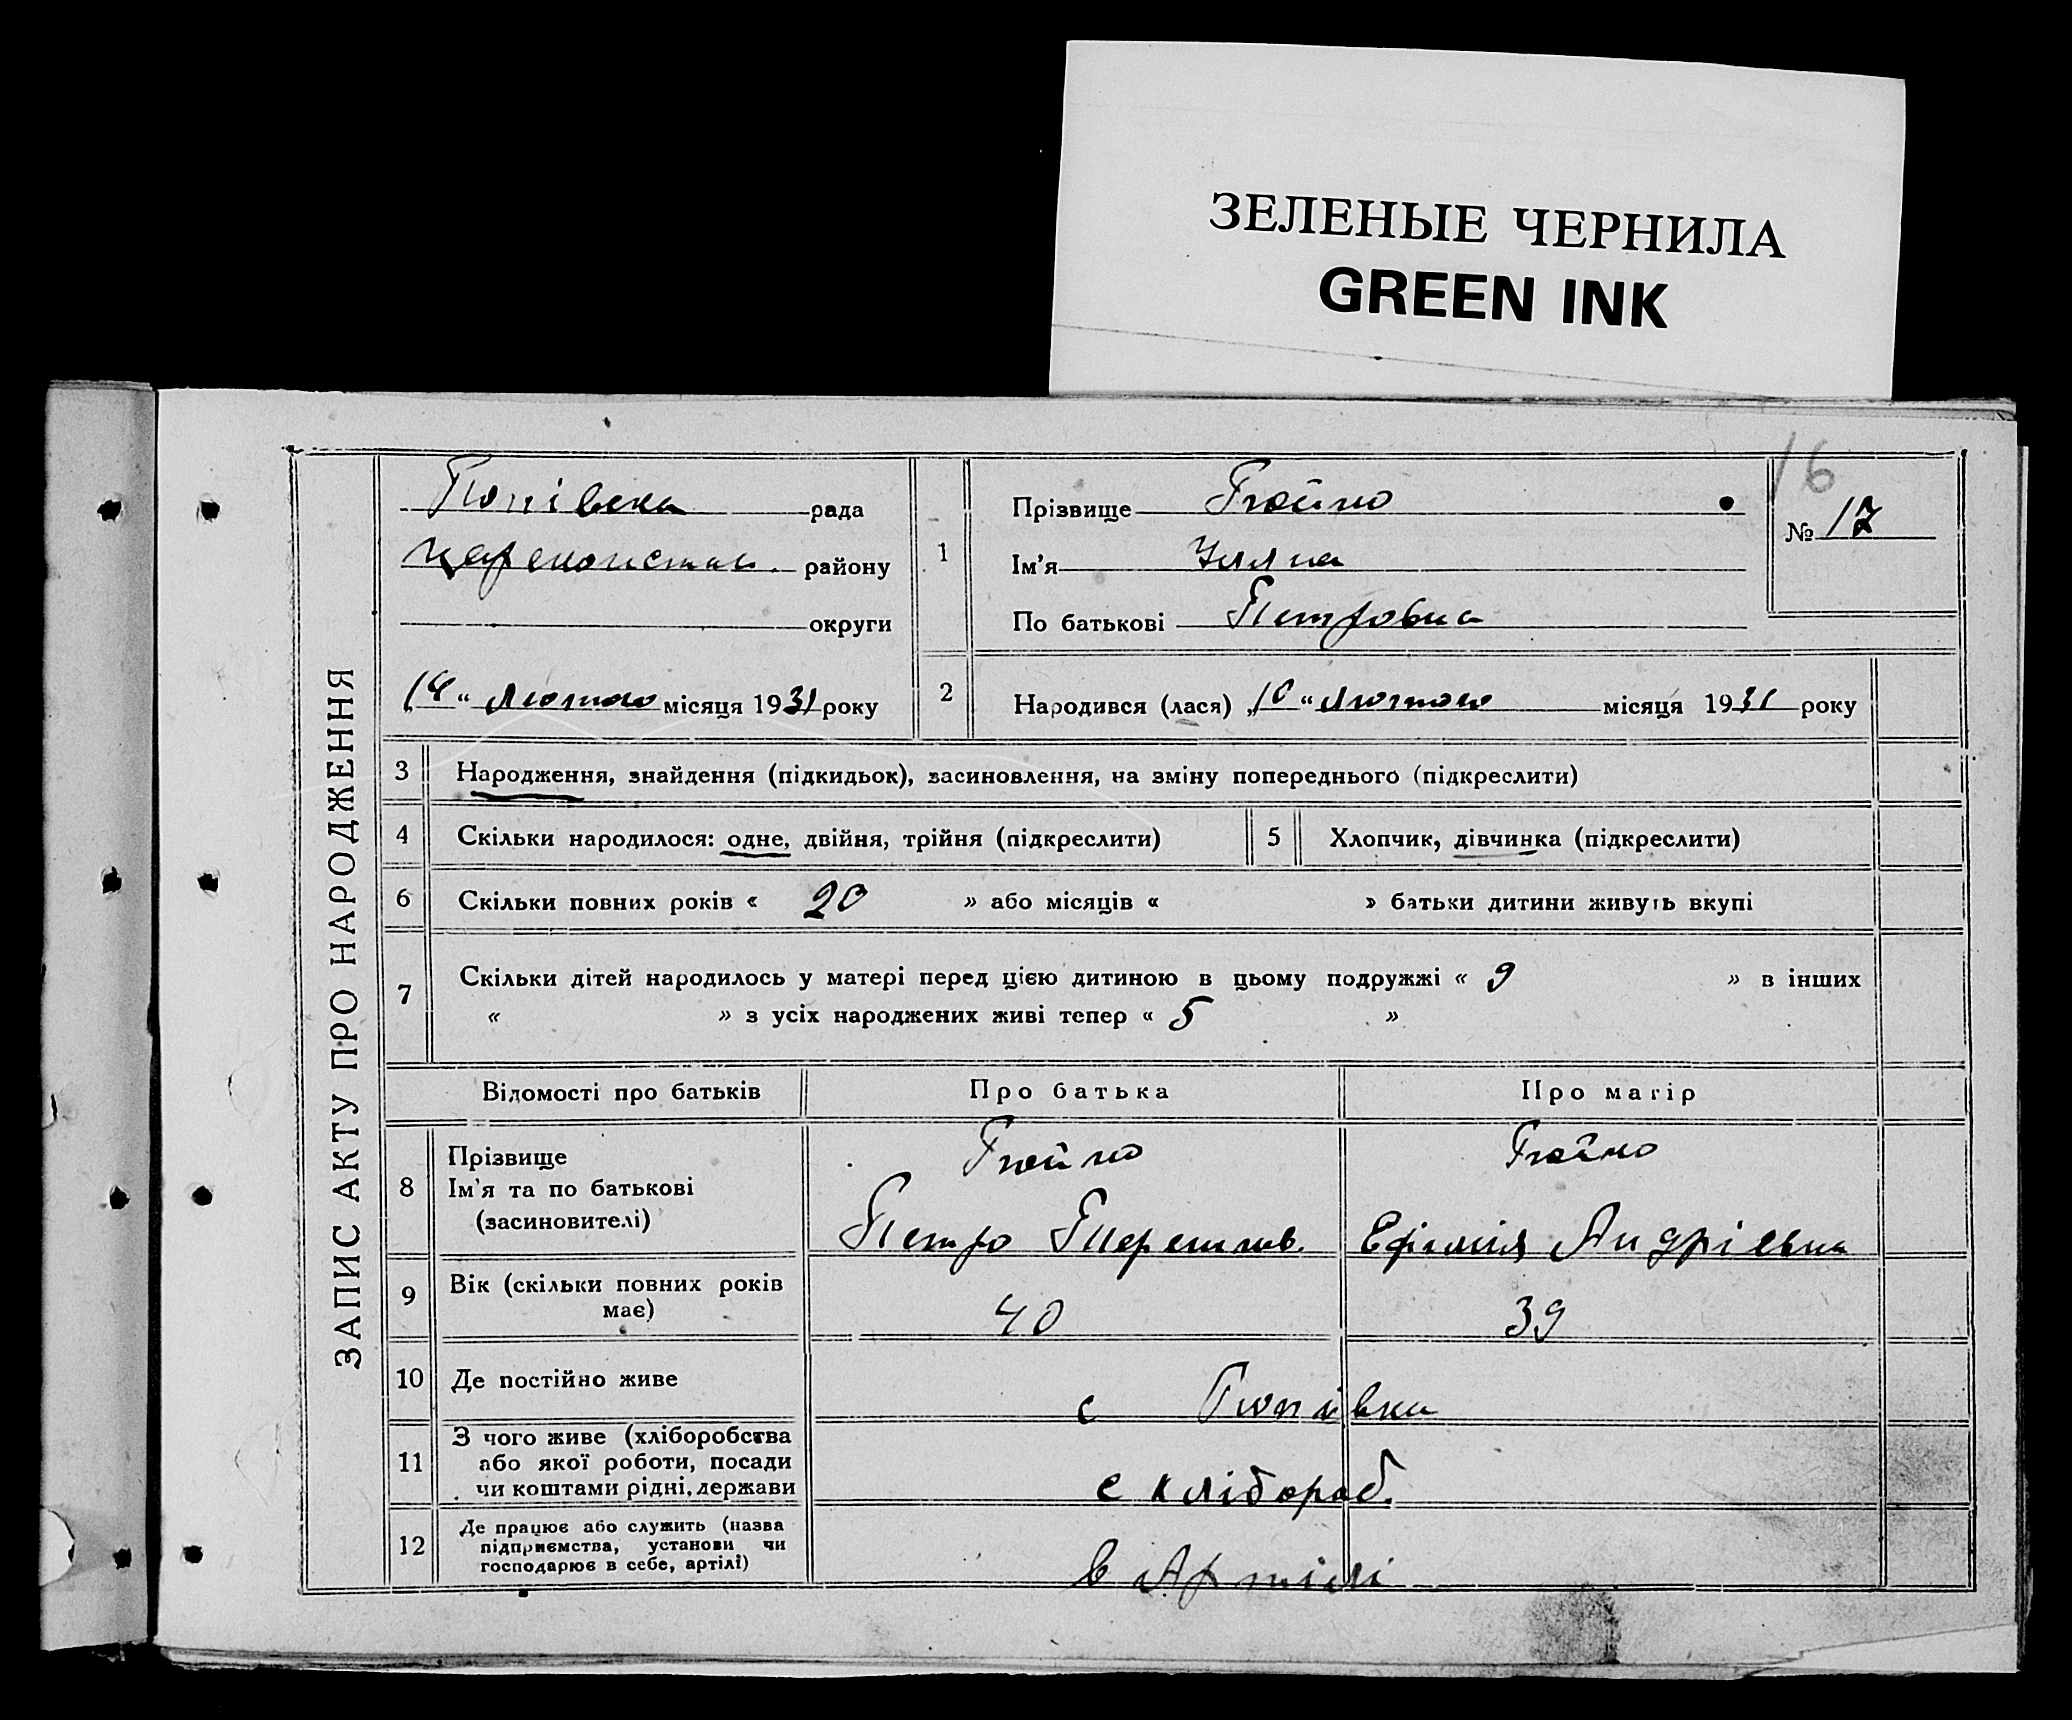 ЗЕЛЕНЫЕ ЧЕРНИЛА
GREEN INK
16
ЗАПИС АКТУ ПРО НАРОДЖЕННЯ
рада
району
округи
1
Прізвище
Ім'я Уляна
По батькові Петровна
№ 17
„ “ Лютого місяця 1931 року
2
Народився (лася) „10“ Лютого місяця 1931 року
3 Народження, знайдення (підкидьок), засиновлення, на зміну попереднього (підкреслити)
4 Скільки народилося: одне, двійня, трійня (підкреслити)
5 Хлопчик, дівчинка (підкреслити)
6 Скільки повних років « 20 » або місяців « » батьки дитини живуть вкупі
7 Скільки дітей народилось у матері перед цією дитиною в цьому подружжі « 9 » в інших
« » з усіх народжених живі тепер « 5 »
Відомості про батьків
Про батька
Про матір
8 Прізвище
Ім'я та по батькові
(засиновителі)
Петро
Андріевна
9 Вік (скільки повних років
має)
40
39
10 Де постійно живе
с Попівка
11 З чого живе (хліборобства
або якої роботи, посади
чи коштами рідні, держави
с хлібороб.
12 Де працює або служить (назва
підприємства, установи чи
господарює в себе, артілі)
в Артілі